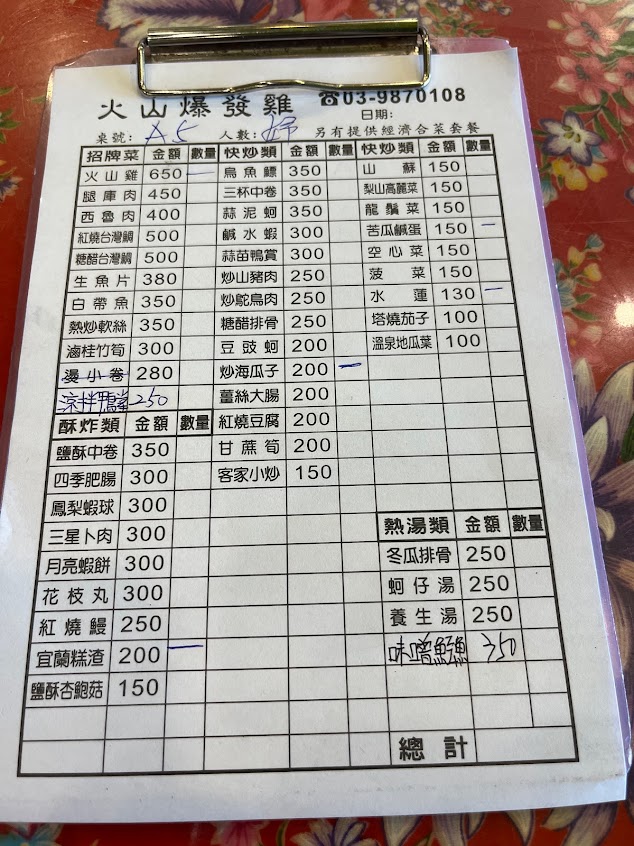 火山爆發雞 ☎03-9870108
日期:
桌號: A5 人數: 另有提供經濟合菜套餐
招牌菜 金額 數量
火山雞 650 一
腿庫肉 450
西魯肉 400
紅燒台灣鯛 500
糖醋台灣鯛 500
生魚片 380
白帶魚 350
熱炒軟絲 350
滷桂竹筍 300
燙小卷 280
涼拌鴨掌 250
酥炸類 金額 數量
鹽酥中卷 350
四季肥腸 300
鳳梨蝦球 300
三星卜肉 300
月亮蝦餅 300
花枝丸 300
紅燒鰻 250
宜蘭糕渣 200 一
鹽酥杏鮑菇 150
快炒類 金額 數量
烏魚鰾 350
三杯中卷 350
蒜泥蚵 350
鹹水蝦 300
蒜苗鴨賞 300
炒山豬肉 250
炒鴕鳥肉 250
糖醋排骨 250
豆豉蚵 200
炒海瓜子 200 一
薑絲大腸 200
紅燒豆腐 200
甘蔗筍 200
客家小炒 150
快炒類 金額 數量
山蘇 150
梨山高麗菜 150
龍鬚菜 150
苦瓜鹹蛋 150 一
空心菜 150
菠菜 150
水蓮 130 一
塔燒茄子 100
溫泉地瓜葉 100
熱湯類 金額 數量
冬瓜排骨 250
蚵仔湯 250
養生湯 250
味噌魚 350
總計